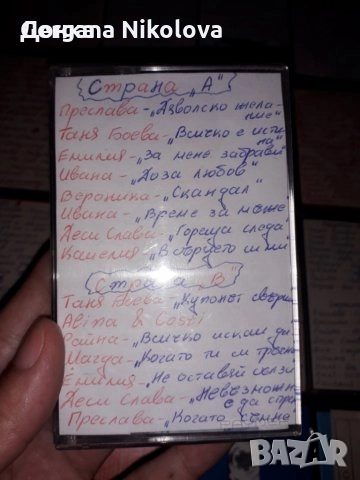 Дончо Nikolova
Страна „А"
Преслава-„Дяволско жела-
ние"
Таня Боева-„Всичко е исти
на"
Емилия-„За мене забрави"
Ивана-„Доза любов"
Вероника-„Скандал"
Ивана-„Време за мъже
Деси Слава-„Гореща следа"
Камелия-„В сърцето ми
Страна „В"
Таня Боева-„Купонът свърш
Alina & Costi
Райна-„Всичко искам да
Магда-„Когато ти се
Емилия-„Не оставяй сълзи
Деси Слава-„Невъзможн
е да спрем
Преслава-„Когато съмне
BAZAR